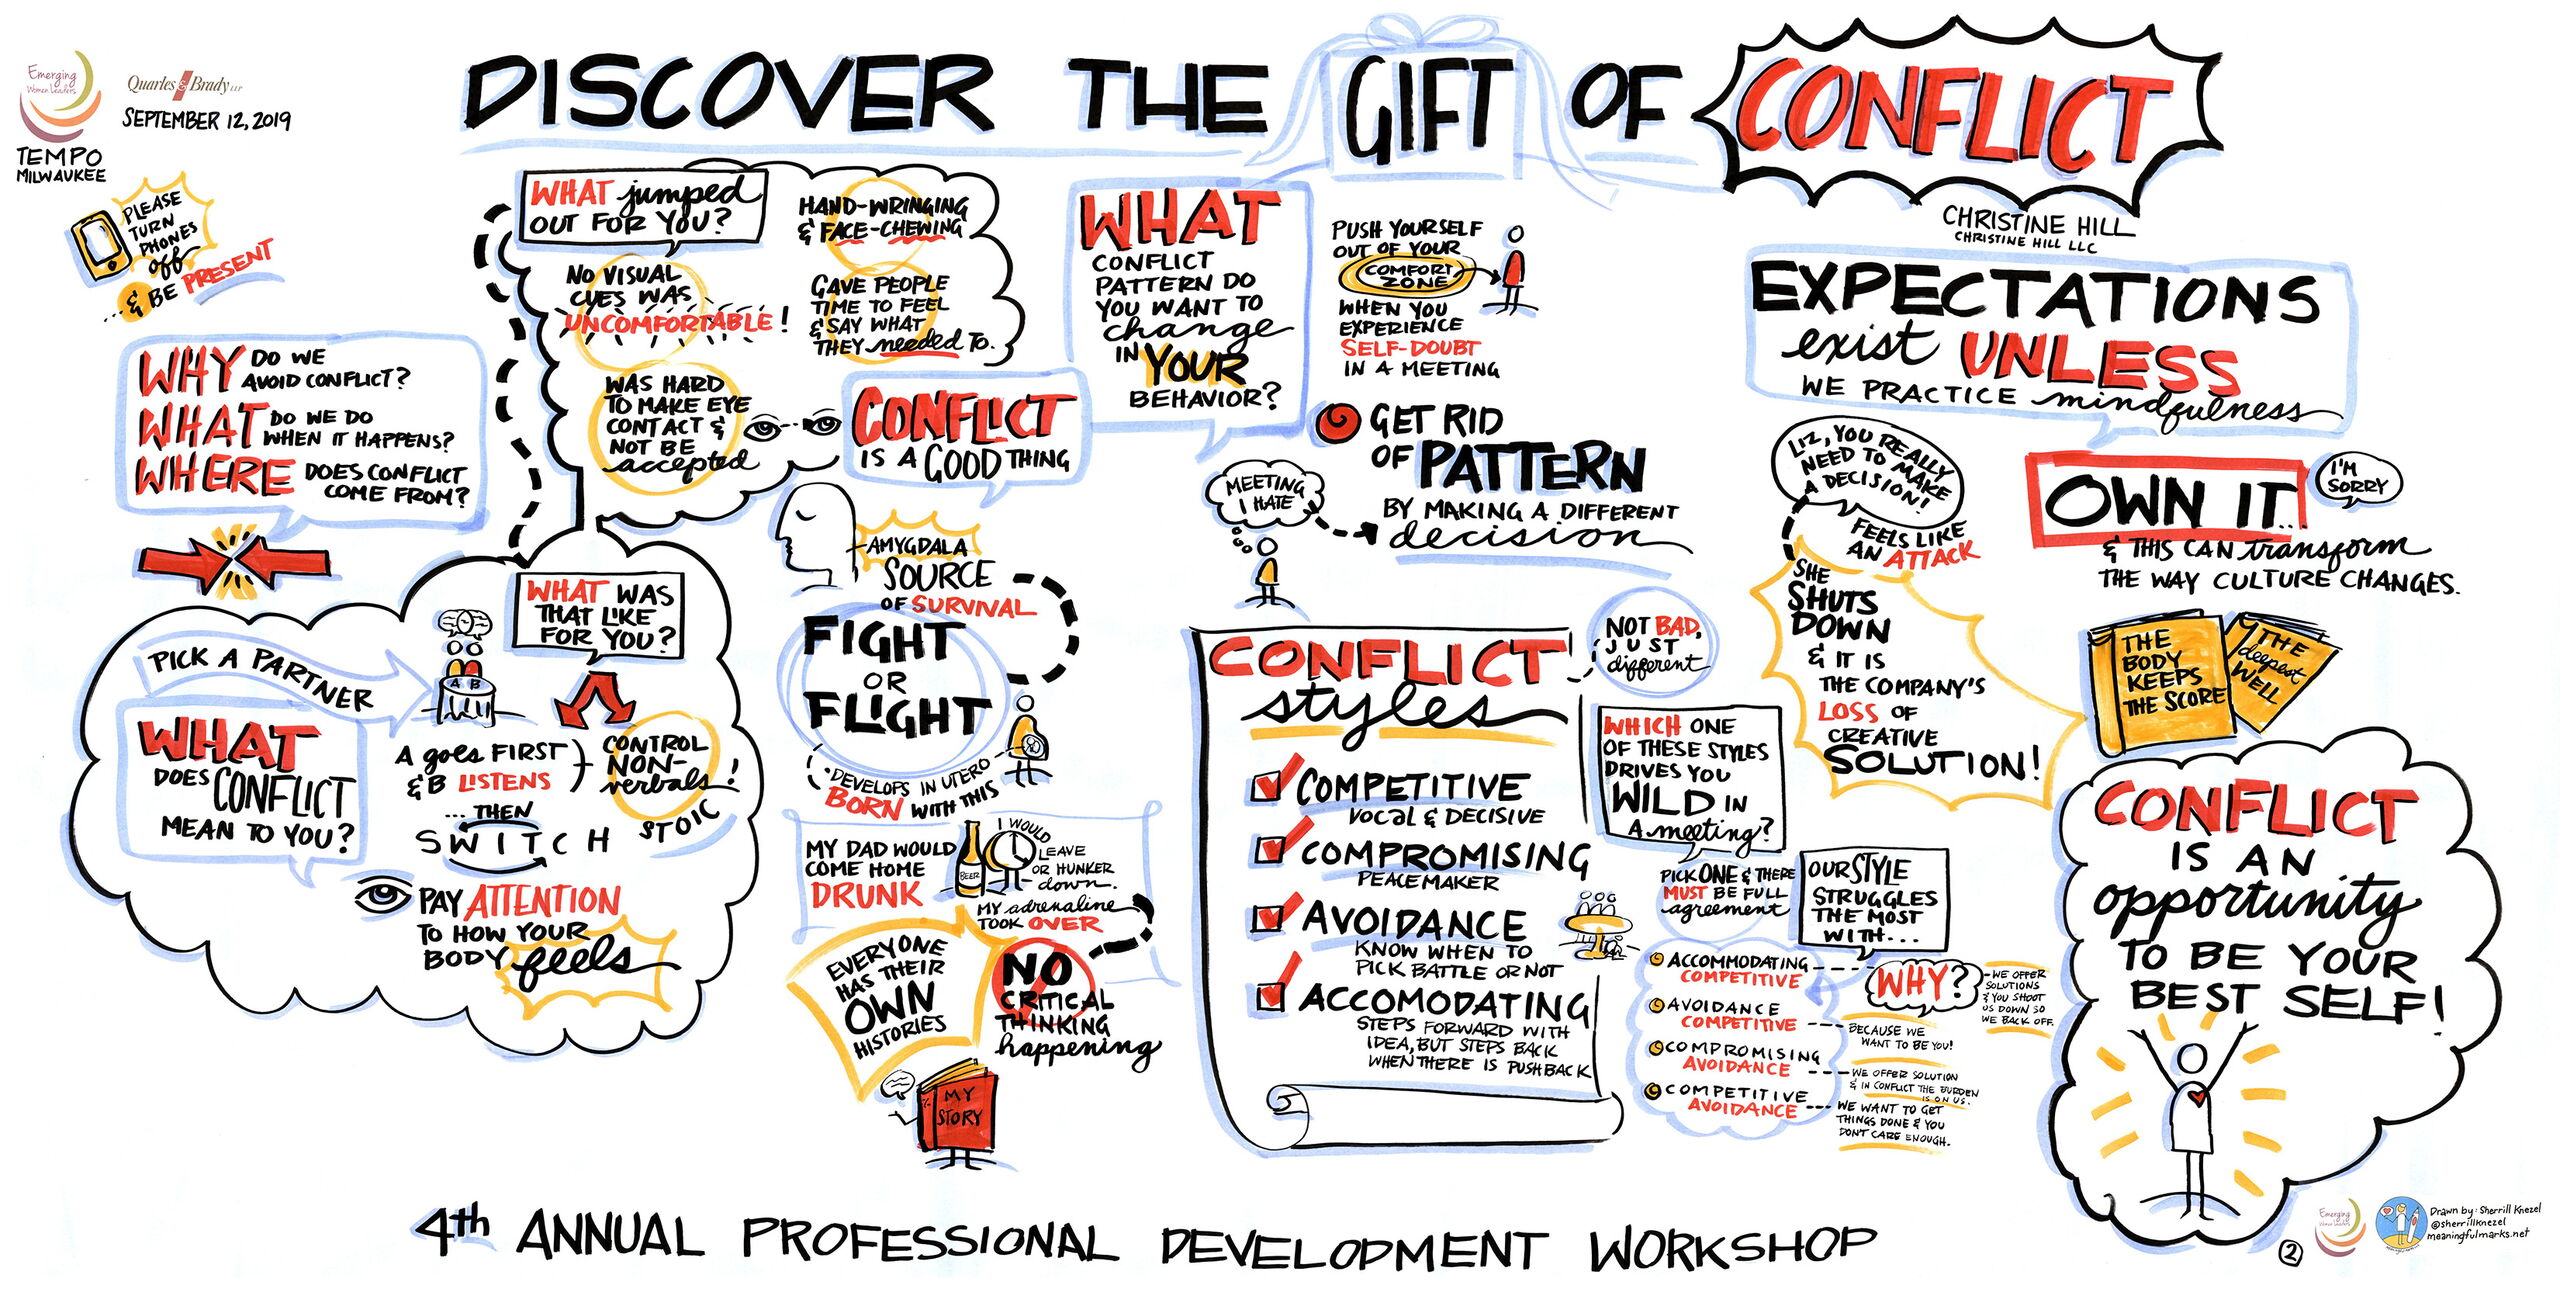 Emerging
Women Leaders
TEMPO
MILWAUKEE
Quarles & Brady LLP
SEPTEMBER 12, 2019
DISCOVER THE GIFT OF CONFLICT
CHRISTINE HILL
CHRISTINE HILL LLC
PLEASE
TURN
PHONES
off
...& BE PRESENT
WHY DO WE
AVOID CONFLICT?
WHAT DO WE DO
WHEN IT HAPPENS?
WHERE DOES CONFLICT
COME FROM?
PICK A PARTNER
A B
WHAT
DOES CONFLICT
MEAN TO YOU?
WHAT WAS
THAT LIKE
FOR YOU?
A goes FIRST
& B LISTENS
... THEN
SWITCH
CONTROL
NON-
verbals!
STOIC
PAY ATTENTION
TO HOW YOUR
BODY feels
WHAT jumped
OUT FOR YOU?
HAND-WRINGING
& FACE-CHEWING
NO VISUAL
CUES WAS
UNCOMFORTABLE!
GAVE PEOPLE
TIME TO FEEL
& SAY WHAT
THEY needed TO.
WAS HARD
TO MAKE EYE
CONTACT &
NOT BE
accepted
CONFLICT
IS A GOOD THING
AMYGDALA
SOURCE
OF SURVIVAL
FIGHT
OR
FLIGHT
DEVELOPS IN UTERO
BORN WITH THIS
MY DAD WOULD
COME HOME
DRUNK
BEER
I WOULD
LEAVE
OR HUNKER
down.
MY adrenaline
TOOK OVER
EVERYONE
HAS THEIR
OWN
HISTORIES
NO
CRITICAL
THINKING
happening
MY
STORY
WHAT
CONFLICT
PATTERN DO
YOU WANT TO
change
IN YOUR
BEHAVIOR?
PUSH YOURSELF
OUT OF YOUR
COMFORT
ZONE
WHEN YOU
EXPERIENCE
SELF-DOUBT
IN A MEETING
GET RID
OF PATTERN
BY MAKING A DIFFERENT
decision
MEETING
I HATE
CONFLICT
styles
NOT BAD,
JUST
different
COMPETITIVE
VOCAL & DECISIVE
COMPROMISING
PEACEMAKER
AVOIDANCE
KNOW WHEN TO
PICK BATTLE OR NOT
ACCOMODATING
STEPS FORWARD WITH
IDEA, BUT STEPS BACK
WHEN THERE IS PUSHBACK
WHICH ONE
OF THESE STYLES
DRIVES YOU
WILD IN
A meeting?
PICK ONE & THERE
MUST BE FULL
agreement
OUR STYLE
STRUGGLES
THE MOST
WITH...
ACCOMMODATING
COMPETITIVE
AVOIDANCE
COMPETITIVE
COMPROMISING
AVOIDANCE
COMPETITIVE
AVOIDANCE
WHY?
WE OFFER
SOLUTIONS
& YOU SHOOT
US DOWN SO
WE BACK OFF.
BECAUSE WE
WANT TO BE YOU!
WE OFFER SOLUTION
& IN CONFLICT THE BURDEN
IS ON US.
WE WANT TO GET
THINGS DONE & YOU
DON'T CARE ENOUGH.
EXPECTATIONS
exist UNLESS
WE PRACTICE mindfulness
LIZ, YOU REALLY
NEED TO MAKE
A DECISION!
FEELS LIKE
AN ATTACK
SHE
SHUTS
DOWN
& IT IS
THE COMPANY'S
LOSS OF
CREATIVE
SOLUTION!
OWN IT...
I'M
SORRY
& THIS CAN transform
THE WAY CULTURE CHANGES.
THE
BODY
KEEPS
THE SCORE
THE
deepest
WELL
CONFLICT
IS AN
opportunity
TO BE YOUR
BEST SELF!
4th ANNUAL PROFESSIONAL DEVELOPMENT WORKSHOP
2
Emerging
Women Leaders
Drawn by: Sherrill Knezel
@sherrillknezel
meaningfulmarks.net